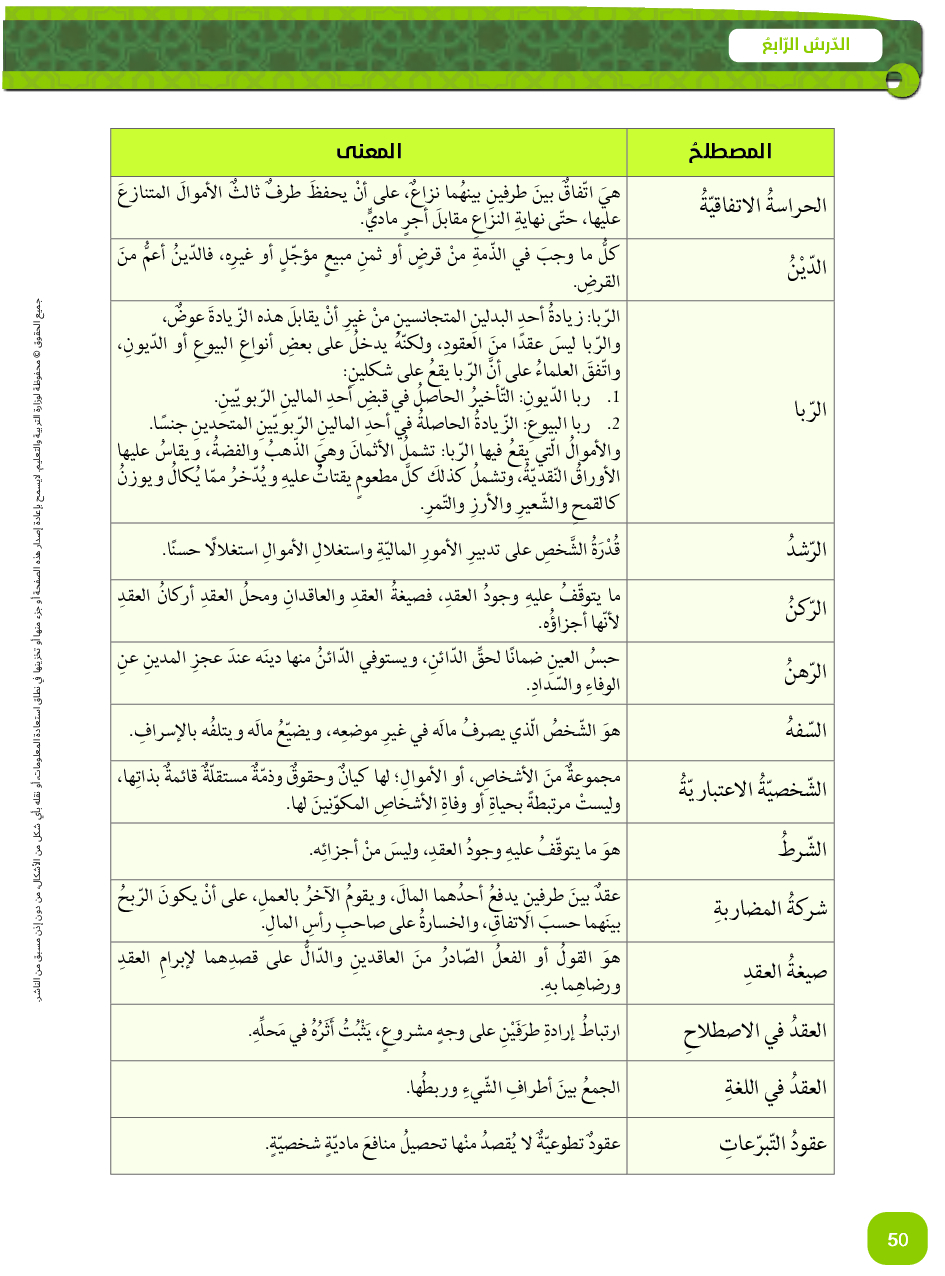 الدّرسُ الرّابعُ
المصطلحُ
المعنى
الحراسةُ الاتفاقيّةُ
هيَ اتّفاقٌ بينَ طرفينِ بينهُما نزاعٌ، على أنْ يحفظَ طرفٌ ثالثٌ الأموالَ المتنازعَ
عليها، حتّى نهايةِ النزاعِ مقابلَ أجرٍ ماديٍّ.
الدّيْنُ
كلُّ ما وجبَ في الذّمةِ منْ قرضٍ أو ثمنِ مبيعٍ مؤجّلٍ أو غيرِه، فالدّينُ أعمُّ منَ
القرضِ.
الرّبا
الرّبا: زيادةُ أحدِ البدلينِ المتجانسينِ منْ غيرِ أنْ يقابلَ هذه الزّيادةَ عوضٌ،
والرّبا ليسَ عقدًا منَ العقودِ، ولكنّهُ يدخلُ على بعضِ أنواعِ البيوعِ أو الدّيونِ،
واتّفقَ العلماءُ على أنَّ الرّبا يقعُ على شكلينِ:
1. ربا الدّيونِ: التّأخيرُ الحاصلُ في قبضِ أحدِ المالينِ الرّبويّينِ.
2. ربا البيوعِ: الزّيادةُ الحاصلةُ في أحدِ المالينِ الرّبويّينِ المتحدينِ جنسًا.
والأموالُ الّتي يقعُ فيها الرّبا: تشملُ الأثمانَ وهيَ الذّهبُ والفضةُ، ويقاسُ عليها
الأوراقُ النّقديّةُ، وتشملُ كذلكَ كلَّ مطعومٍ يقتاتُ عليهِ ويُدّخرُ ممّا يُكالُ ويوزنُ
كالقمحِ والشّعيرِ والأرزِ والتّمرِ.
الرّشدُ
قُدْرَةُ الشَّخصِ على تدبيرِ الأمورِ الماليّةِ واستغلالِ الأموالِ استغلالًا حسنًا.
الرّكنُ
ما يتوقّفُ عليهِ وجودُ العقدِ، فصيغةُ العقدِ والعاقدانِ ومحلُ العقدِ أركانُ العقدِ
لأنّها أجزاؤُه.
الرّهنُ
حبسُ العينِ ضمانًا لحقِّ الدّائنِ، ويستوفي الدّائنُ منها دينَه عندَ عجزِ المدينِ عنِ
الوفاءِ والسّدادِ.
السّفهُ
هوَ الشّخصُ الّذي يصرفُ مالَه في غيرِ موضعِه، ويضيّعُ مالَه ويتلفُه بالإسرافِ.
الشّخصيّةُ الاعتباريّةُ
مجموعةٌ منَ الأشخاصِ، أو الأموالِ؛ لها كيانٌ وحقوقٌ وذمّةٌ مستقلّةٌ قائمةٌ بذاتِها،
وليستْ مرتبطةً بحياةِ أو وفاةِ الأشخاصِ المكوّنينَ لها.
الشّرطُ
هوَ ما يتوقّفُ عليهِ وجودُ العقدِ، وليسَ منْ أجزائِه.
شركةُ المضاربةِ
عقدٌ بينَ طرفينِ يدفعُ أحدُهما المالَ، ويقومُ الآخرُ بالعملِ، على أنْ يكونَ الرّبحُ
بينَهما حسبَ الاتفاقِ، والخسارةُ على صاحبِ رأسِ المالِ.
صيغةُ العقدِ
هوَ القولُ أو الفعلُ الصّادرُ منَ العاقدينِ والدّالُّ على قصدِهما لإبرامِ العقدِ
ورضاهِما بهِ.
العقدُ في الاصطلاحِ
ارتباطُ إرادةِ طرَفَيْنِ على وجهٍ مشروعٍ، يَثْبُتُ أَثَرُهُ في مَحلِّهِ.
العقدُ في اللغةِ
الجمعُ بينَ أطرافِ الشّيءِ وربطُها.
عقودُ التّبرّعاتِ
عقودٌ تطوعيّةٌ لا يُقصدُ منْها تحصيلُ منافعَ ماديّةٍ شخصيّةٍ.
جميع الحقوق © محفوظة لوزارة التربية والتعليم. لايسمح بإعادة إصدار هذه الصفحة أو جزء منها أو تخزينها في نطاق استعادة المعلومات، أو نقله بأي شكل من الأشكال، من دون إذن مسبق من الناشر.
50